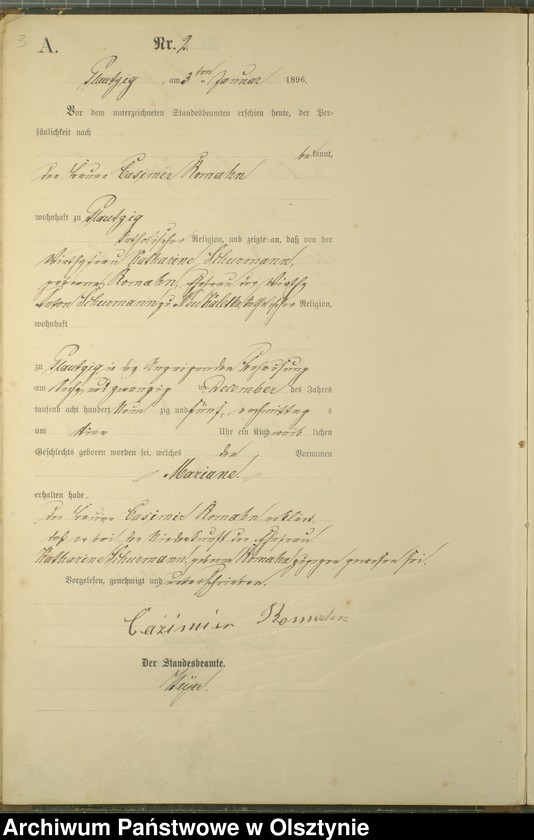 3
A.
Nr. 2.
Plautzig, am 3ten Januar 1896.
Vor dem unterzeichneten Standesbeamten erschien heute, der Per-
sönlichkeit nach
bekannt,
der Casimir Romahn
wohnhaft zu Plautzig
katholischer Religion, und zeigte an, daß von der
Wirthsfrau Katharine Schurmann,
geborene Romahn, Ehefrau des Wirths
Anton Schurmann zu Neu Kaletka katholischer Religion,
wohnhaft
zu Plautzig in des Anzeigenden Behausung
am Sechs und zwanzig ten Dezember des Jahres
tausend acht hundert Neun zig und fünf, vormittag s
um Uhr ein Kind weib lichen
Geschlechts geboren worden sei, welches den Vornamen
Mariane.
erhalten habe.
Der Casimir Romahn erklärt,
daß er bei der Niederkunft der Ehefrau
Katharine Schurmann, geborene Romahn zugegen gewesen sei.
Vorgelesen, genehmigt und unterschrieben.
Cazimier Romahn
Der Standesbeamte.
Archiwum Państwowe w Olsztynie